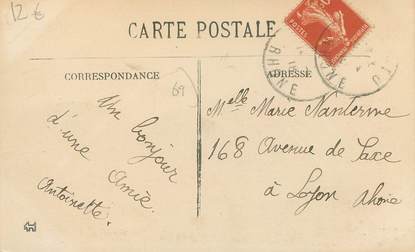 12 €
CARTE POSTALE
CORRESPONDANCE
ADRESSE
69
RHONE
Un bonjour
d'une Amie
Antoinette.
Melle Marie Nanterme
168 Avenue de Saxe
à Lyon Rhône